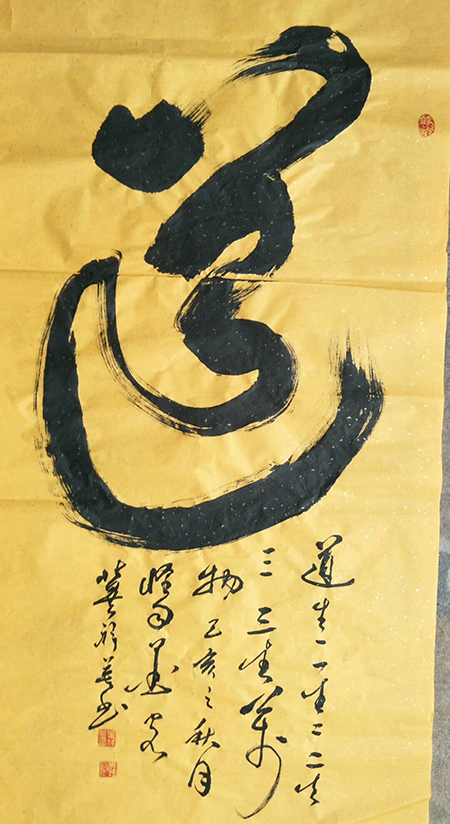 道
道生一一生二二生
三三生万
物己亥之秋月
墨
书